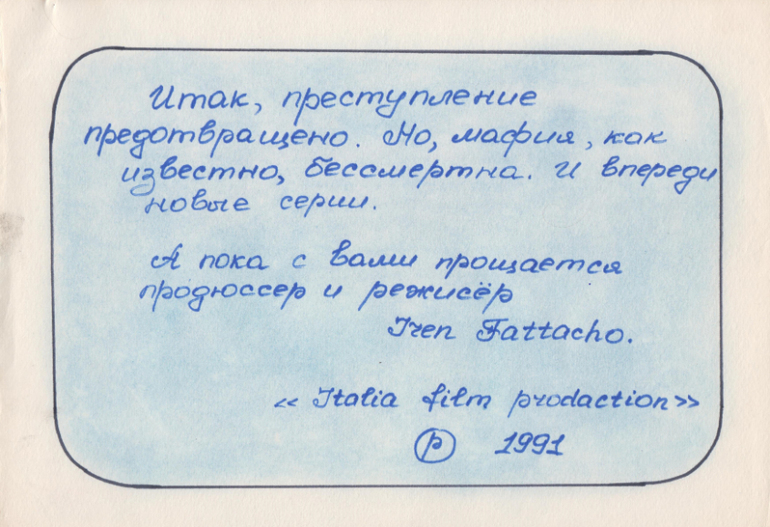 Итак, преступление
предотвращено. Но, мафия, как
известно, бессмертна. И впереди
новые серии.
А пока с вами прощается
продюссер и режисёр
Iren Fattacho.
«Italia film prodaction»
Ⓟ 1991